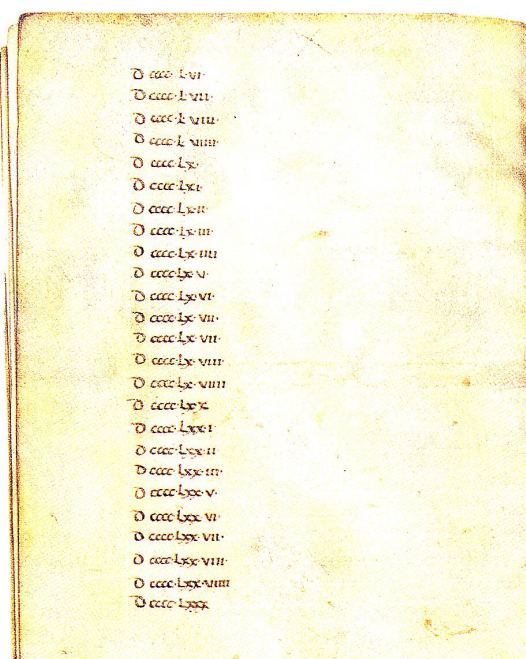 D cccc· L·vi·
D cccc· L·vii·
D cccc· L·viii·
D cccc· L·viiii·
D cccc· Lx·
D cccc· Lxi·
D cccc· Lx·ii·
D cccc· Lx·iii·
D cccc· Lx·iiii
D cccc· Lx·v·
D cccc· Lx·vi·
D cccc· Lx·vii·
D cccc· Lx·vii·
D cccc· Lx·viii·
D cccc· Lx·viiii
D cccc· Lxx
D cccc· Lxx·i
D cccc· Lxx·ii
D cccc· Lxx·iii·
D cccc· Lxx·v·
D cccc· Lxx·vi·
D cccc· Lxx·vii·
D cccc· Lxx·viii·
D cccc· Lxx·viiii
D cccc· Lxxx